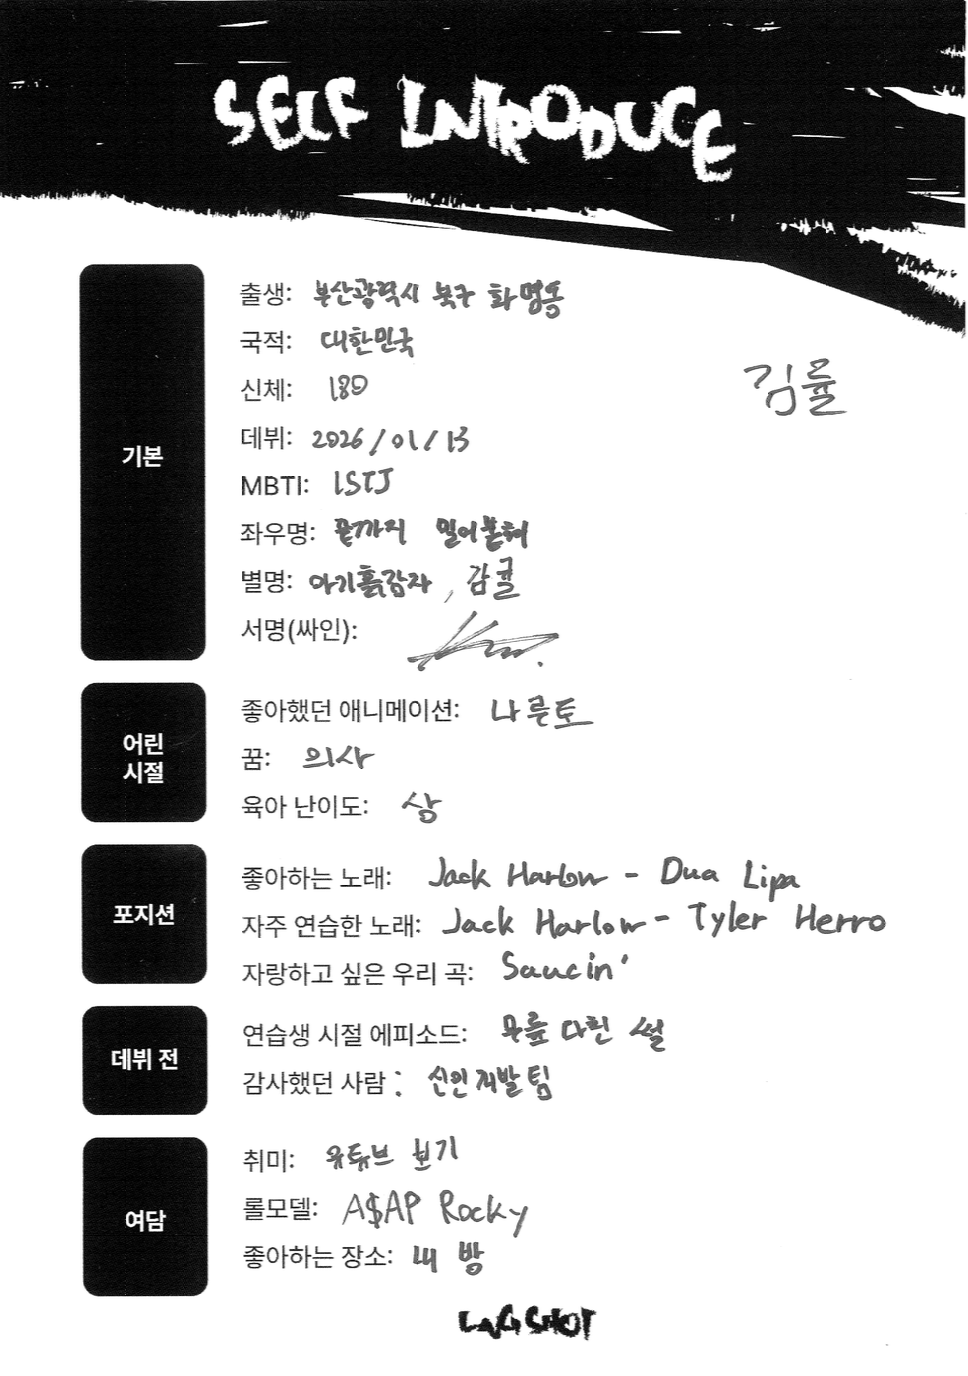 SELF INTRODUCE
기본
출생: 부산광역시 북구 화명동
국적: 대한민국
신체: 180
김률
데뷔: 2026/01/13
MBTI: ISTJ
좌우명: 끝까지 밀어붙혀
별명: 아기흙감자, 감귤
서명(싸인):
어린
시절
좋아했던 애니메이션: 나루토
꿈: 의사
육아 난이도: 상
포지션
좋아하는 노래: Jack Harlow - Dua Lipa
자주 연습한 노래: Jack Harlow - Tyler Herro
자랑하고 싶은 우리 곡: Saucin'
데뷔 전
연습생 시절 에피소드: 무릎 다친 썰
감사했던 사람: 신인개발팀
여담
취미: 유튜브 보기
롤모델: A$AP Rocky
좋아하는 장소: 내 방
LNGSHOT